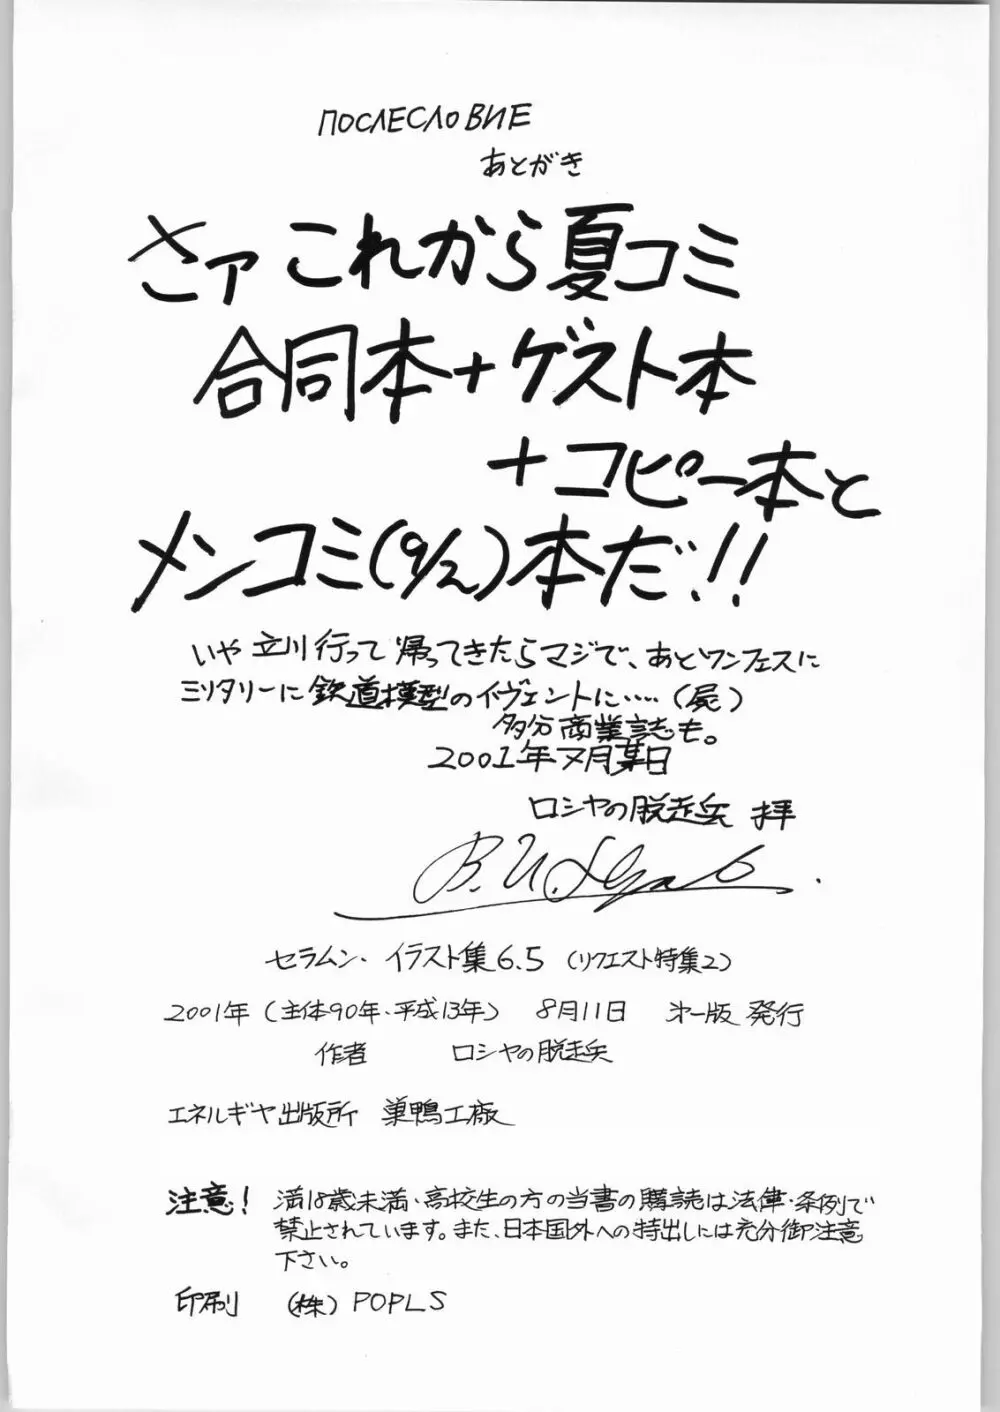 ПОСЛЕСЛОВИЕ
あとがき
さァ これから夏コミ
合同本+ゲスト本
+コピー本と
メンコミ(9/2)本だ!!
いや 立川行って帰ってきたらマジで、あとワンフェスに
ミリタリーに鉄道模型のイヴェントに……(屍)
多分商業誌も。
2001年7月某日
ロシヤの脱走兵 拝
セラムン・イラスト集6.5(リクエスト特集2)
2001年(主体90年・平成13年) 8月11日 第一版 発行
作者 ロシヤの脱走兵
エネルギヤ出版所 巣鴨工廠
注意! 満18歳未満・高校生の方の当書の購読は法律・条例で
禁止されています。また、日本国外への持出しには充分御注意
下さい。
印刷 (株)POPLS